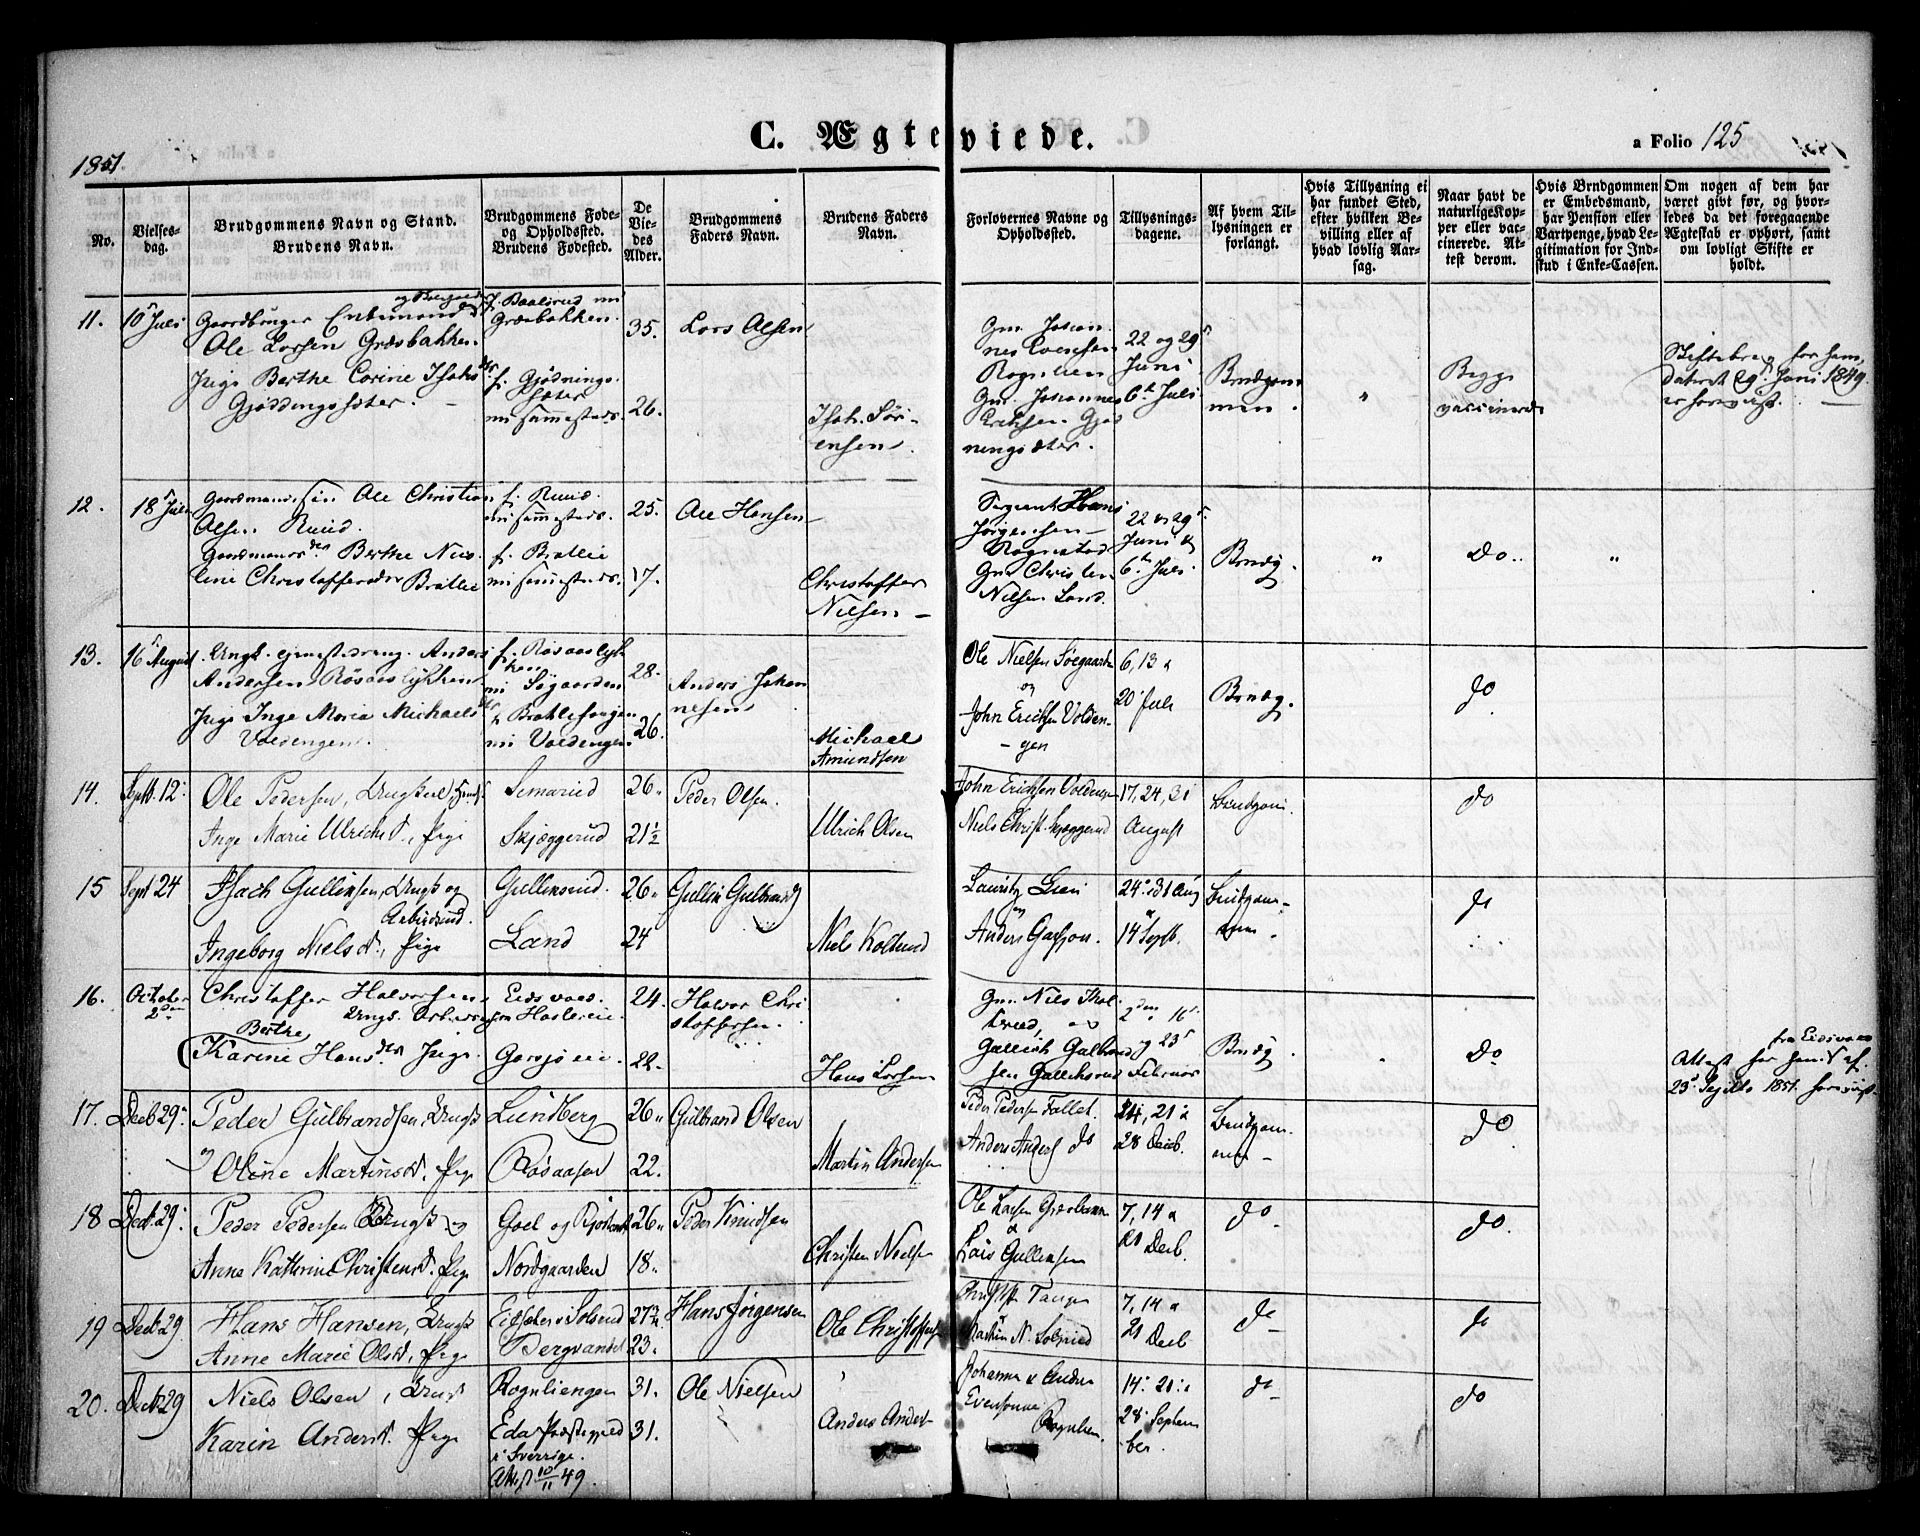 C. Ægteviede.
1851.
a Folio 125
No.
Vielses-
dag.
Brudgommens Navn og Stand.
Brudens Navn.
Brudgommens Føde-
og Opholdssted.
Brudens Fødested.
De
Vie-
des
Alder.
Brudgommens
Faders Navn.
Brudens Faders
Navn.
Forlovernes Navne og
Opholdssted.
Tillysnings-
dagene.
Af hvem Til-
lysningen er
forlangt.
Hvis Tillysning ei
har fundet Sted,
efter hvilken Be-
villing eller af
hvad lovlig Aar-
sag.
Naar havt de
naturlige Kop-
per eller vac-
cinerede. At-
test derom.
Hvis Brudgommen
er Embedsmand,
har Pension eller
Vartpenge, hvad Le-
gitimation for Ind-
skud i Enke-Cassen.
Om nogen af dem har
været givt før, og hvor-
ledes da det foregaaende
Ægteskab er ophørt, samt
om lovligt Skifte er
holdt.
11.
10 Juli
Gaardbruger Enkemand
Ole Larsen Græsbakken
Pige Berthe Corine Isaks
Gjødningsæter.
f. Baalsrud
Græsbakken.
f. Gjødnings-
sæter
sammesteds.
35.
26.
Lars Olsen
Isak Sør-
ensen
Gm. Johan-
nes Evensen
Rognlien
Gm. Johannes
Eriksen Gjød
ningsæter.
22 og 29
Juni
6 Juli
Brudgom
men.
"
Begge
vaccinerede
Skiftebrev for ham
dateret 29 Juni 1849.
er forevist.
12.
18 Juli
Gaardmands søn Ole Christian
Olsen Ruud.
Gaardmands Berthe Nico-
line Christoffersdter Bratlie
f. Ruud.
sammesteds.
f. Bratlie
sammesteds.
25.
17.
Ole Hansen
Christoffer
Nielsen
Sergeant Hans
Jørgensen
Rognstad
Gm Christen
Nielsen Land.
22 og 29
Juni
6 Juli.
Brudg.
"
Do.
"
13.
16 August
Ungk. Anders
Andersen Røsaaslykken
Pige Inge Maria Michaels
Voldengen.
f. Røsaaslyk
ken
Søgaarden
Bratlieengen
Voldengen
28.
26.
Anders Johan
nesen
Michael
Amundsen
Ole Nielsen Søegaarden
og
John Ericksen Volden-
gen
6, 13 &
20 Juli
Brudg.
do
14.
Septb. 12
Ole Pedersen, Ungkarl,
Inge Marie Ulrichsd., Pige
Semerud
Skjæggerud
26
21½
Peder Olsen
Ulrich Olsen
John Ericksen Voldengen
Niels Christ. Skjæggerud
17, 24, 31
August
Brudgom.
do
15
Sept 24
Isach Gullinsen, Ungk og
Arbeidsmd.
Ingeborg Nielsd., Pige
Gullinsrud.
Land
26
24
Gullin Gulbrands
Niels Kolsrud
Lauritz Lien
og
Anders Garsjøen.
24, 31 Aug
&
14 Septb.
Brudgom-
men.
do
16.
October
2den
Christoffer Halvorsen
Ungk. Arbeids
Berthe
Karine Hansdter Pige.
Eidsvold.
Garsjøen.
24.
22.
Halvor Chri
stoffersen.
Hans Larsen
Gm. Niels
og
Gullich Gulbrand
sen Gullichsrud
2den, 16
og 23
Februar
Brudg.
"
Do
fra Eidsvold
Attest for
23 Septb 1851 forevist.
17.
Decb 29
Peder Gulbrandsen, Ungk
Oline Martinsd. Pige
Lundberg
Røsaasen
26
22.
Gulbrand Olsen
Martin Andersen
Peder Pedersen Fallet.
Anders Anders do
14, 21 &
28 Decb.
Brudgom-
men
do
18
Decb. 29
Peder Pedersen Ungk og
Anne Kattrine Christensd. Pige
Nordgaarden
26
18
Peder Knudsen
Christen Nielsen
Ole Larsen Græsbakken
&
Lars Gullinsen
7, 14 &
21 Decb.
do
do
19
Decb 29
Hans Hansen, Ungk
Anne Marie Olsd, Pige
Solsrud
Bergvandet
27
23.
Hans Jørgensen
Ole Christoffersen
Tangen
N. Solsrud
7, 14 &
21 Decb
do
do
20.
Decb 29
Niels Olsen, Ungk
Karin Andersd. Pige
Rognliengen
Eda Præstegjeld
i Sverrige.
Attest 10/11 49.
31.
31.
Ole Nielsen
Anders Anders
Johannes & Anders
Evensønner
Rognlien.
14, 21 &
28 Septem
ber
do
do